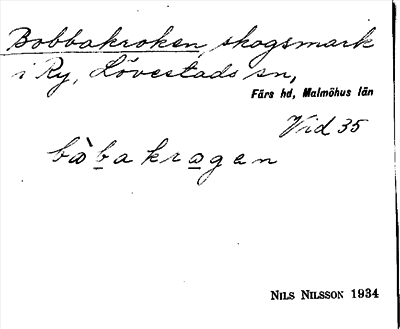 Bobbakroken, skogsmark
i Ry, Lövestads sn,
Färs hd, Malmöhus län
Vid 35
bàbakragen
NILS NILSSON 1934